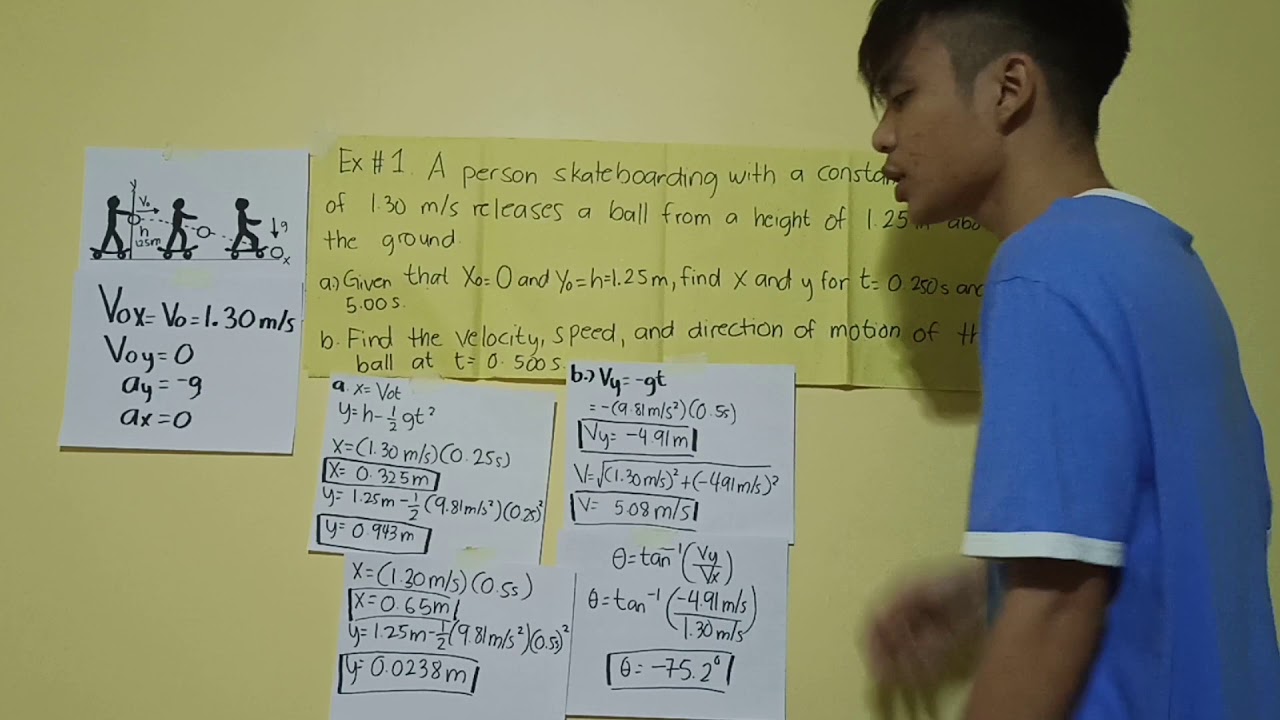 y
V₀
h
1.25m
g
x
Vox = Vo = 1.30 m/s
Voy = 0
ay = -g
ax = 0
Ex # 1. A person skateboarding with a
of 1.30 m/s releases a ball from a height of 1.25m
the ground.
a.) Given that Xo = 0 and Yo = h = 1.25m, find X and y for t = 0.250 s and
5.00 s.
b. Find the velocity, speed, and direction of motion of
ball at t = 0.500 s.
a. x = Vot
y = h - 1/2 gt²
X = (1.30 m/s)(0.25s)
X = 0.325m
y = 1.25m - 1/2 (9.81m/s²)(0.25)²
y = 0.943m
X = (1.30 m/s)(0.5s)
X = 0.65m
y = 1.25m - 1/2 (9.81m/s²)(0.5s)²
y = 0.0238m
b.) Vy = -gt
= -(9.81m/s²)(0.5s)
Vy = -4.91m
V = √(1.30m/s)² + (-491m/s)²
V = 5.08m/s
θ = tan⁻¹ (Vy/Vx)
θ = tan⁻¹ (-4.91m/s / 1.30 m/s)
θ = -75.2°